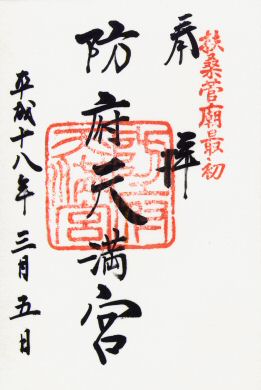 扶桑菅廟最初
奉拝
防府天満宮
平成十八年三月五日
防府天満宮